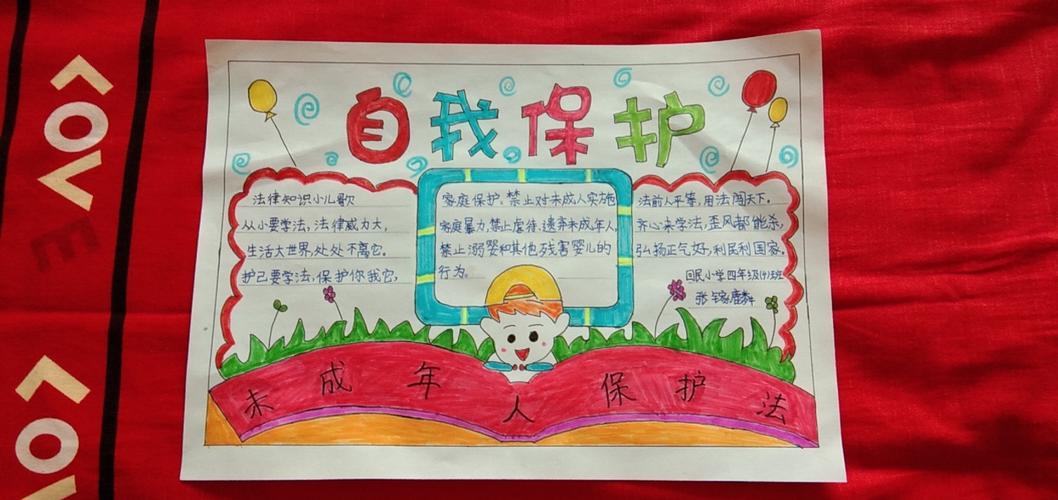 LOVE
LOV
自我保护
法律知识小儿歌
从小要学法,法律威力大,
生活大世界,处处不离它。
护己要学法,保护你我它,
家庭保护,禁止对未成人实施
家庭暴力,禁止虐待、遗弃未成年人,
禁止溺婴和其他残害婴儿的
行为。
法前人平等,用法闯天下,
齐心来学法,歪风都能杀,
弘扬正气好,利民利国家。
回民小学四年3级(4)班
未成年人保护法